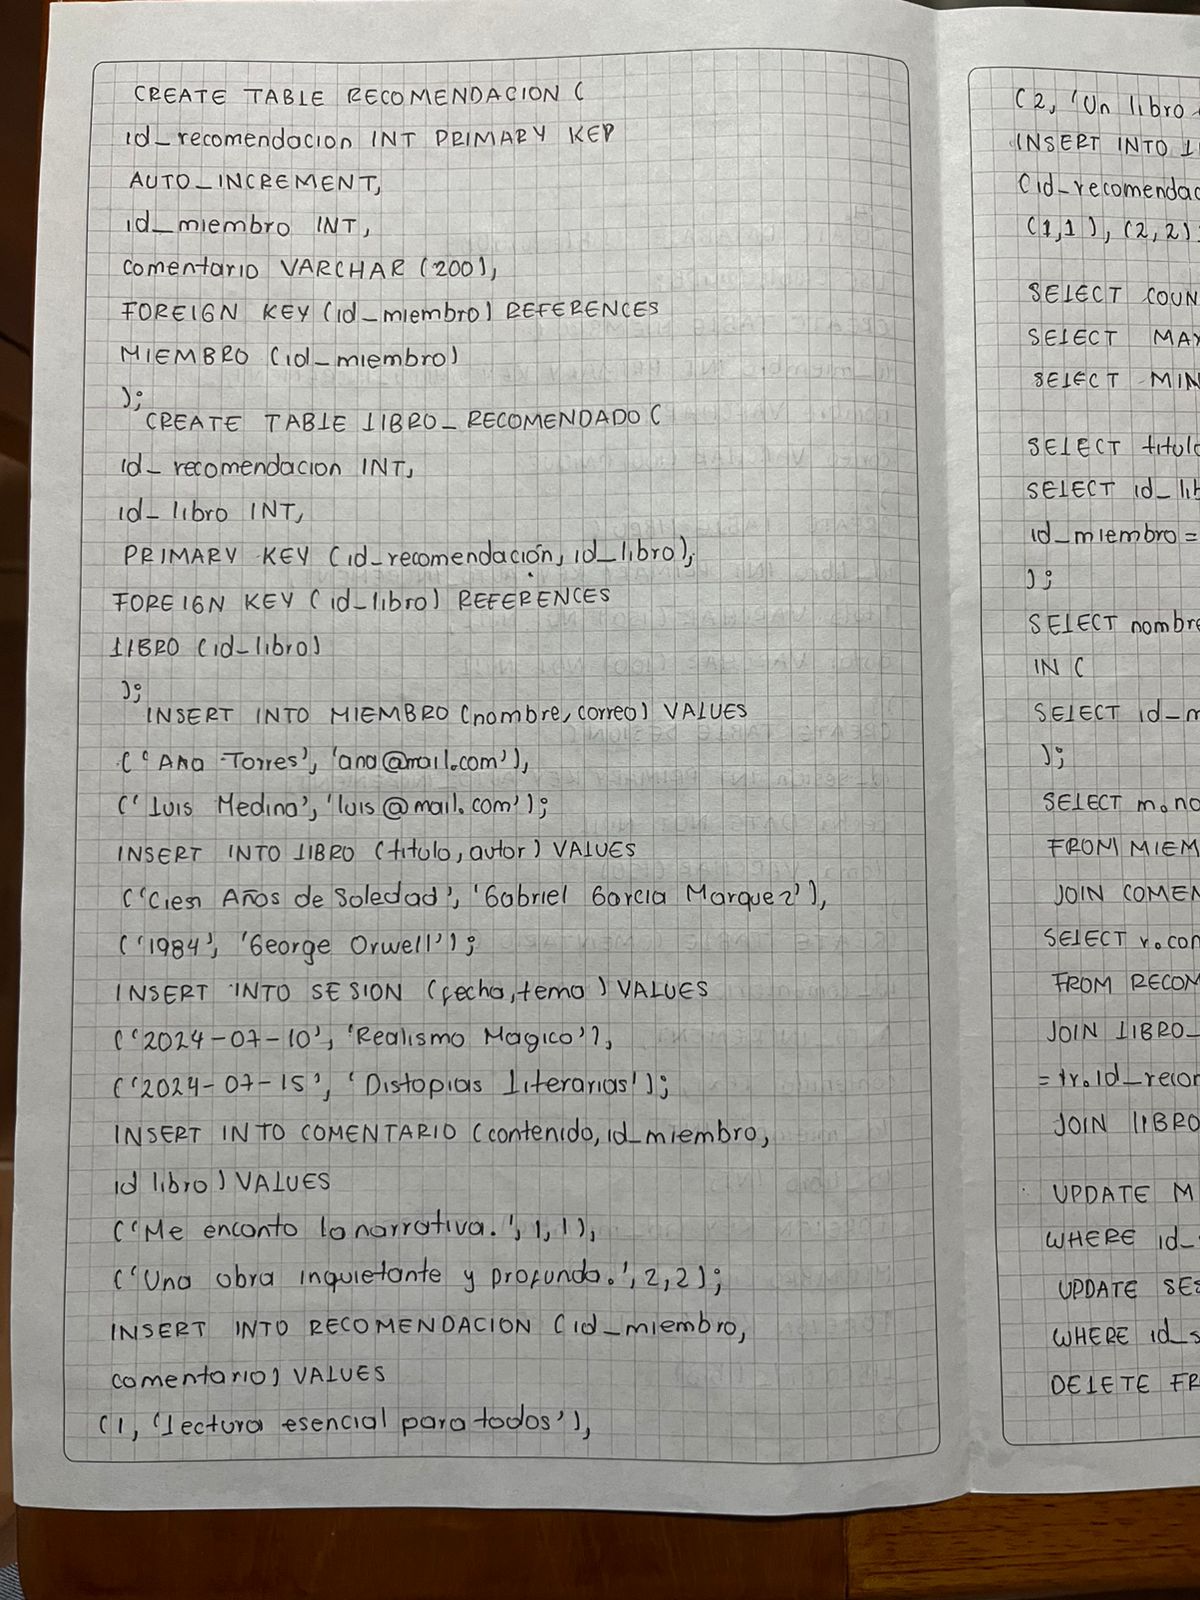 CREATE TABLE RECOMENDACION (
id_recomendacion INT PRIMARY KEY
AUTO_INCREMENT,
id_miembro INT,
comentario VARCHAR (200),
FOREIGN KEY (id_miembro) REFERENCES
MIEMBRO (id_miembro)
);
CREATE TABLE LIBRO_RECOMENDADO (
id_recomendacion INT,
id_libro INT,
PRIMARY KEY (id_recomendación, id_libro),
FOREIGN KEY (id_libro) REFERENCES
LIBRO (id_libro)
);
INSERT INTO MIEMBRO (nombre, correo) VALUES
('Ana Torres', 'ana@mail.com'),
('Luis Medina', 'luis@mail.com');
INSERT INTO LIBRO (titulo, autor) VALUES
('Cien Años de Soledad', 'Gabriel Garcia Marquez'),
('1984', 'George Orwell');
INSERT INTO SESION (fecha, tema) VALUES
('2024-07-10', 'Realismo Magico'),
('2024-07-15', 'Distopias Literarias');
INSERT INTO COMENTARIO (contenido, id_miembro,
id libro) VALUES
('Me encanto la narrativa.', 1, 1),
('Una obra inquietante y profunda.', 2, 2);
INSERT INTO RECOMENDACION (id_miembro,
comentario) VALUES
(1, 'Lectura esencial para todos'),
(2, 'Un libro
INSERT INTO LI
(id_recomendac
(1,1), (2,2);
SELECT COUN
SELECT MAX
SELECT MIN
SELECT titulo
SELECT id_lib
id_miembro =
);
SELECT nombre
IN (
SELECT id_m
);
SELECT m.no
FROM MIEM
JOIN COMEN
SELECT r.com
FROM RECOM
JOIN LIBRO_
= lr.id_recom
JOIN LIBRO
UPDATE M
WHERE id_
UPDATE SES
WHERE id_s
DELETE FR